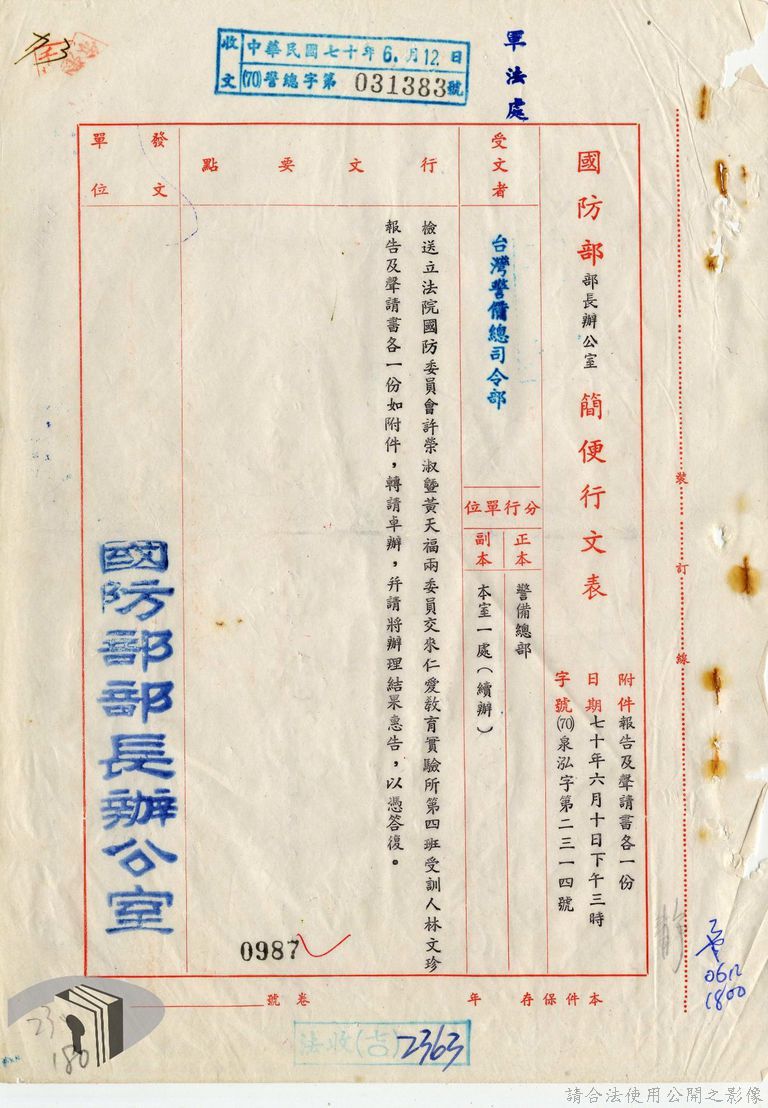 收文
中華民國七十年6.月12.日
(70)警總字第031383號
軍法處
國防部部長辦公室簡便行文表
附件報告及聲請書各一份
日期七十年六月十日下午三時
字號(70)泉泓字第二三一四號
受文者
台灣警備總司令部
分行單位
正本
警備總部
副本
本室一處(續辦)
行文要點
檢送立法院國防委員會許榮淑暨黃天福兩委員交來仁愛教育實驗所第四班受訓人林文珍
報告及聲請書各一份如附件,轉請卓辦,并請將辦理結果惠告,以憑答復。
發文單位
國防部部長辦公室
0987
裝
訂
線
0612
1800
本件保存 年
卷號
法收(吉)2363
180
請合法使用公開之影像